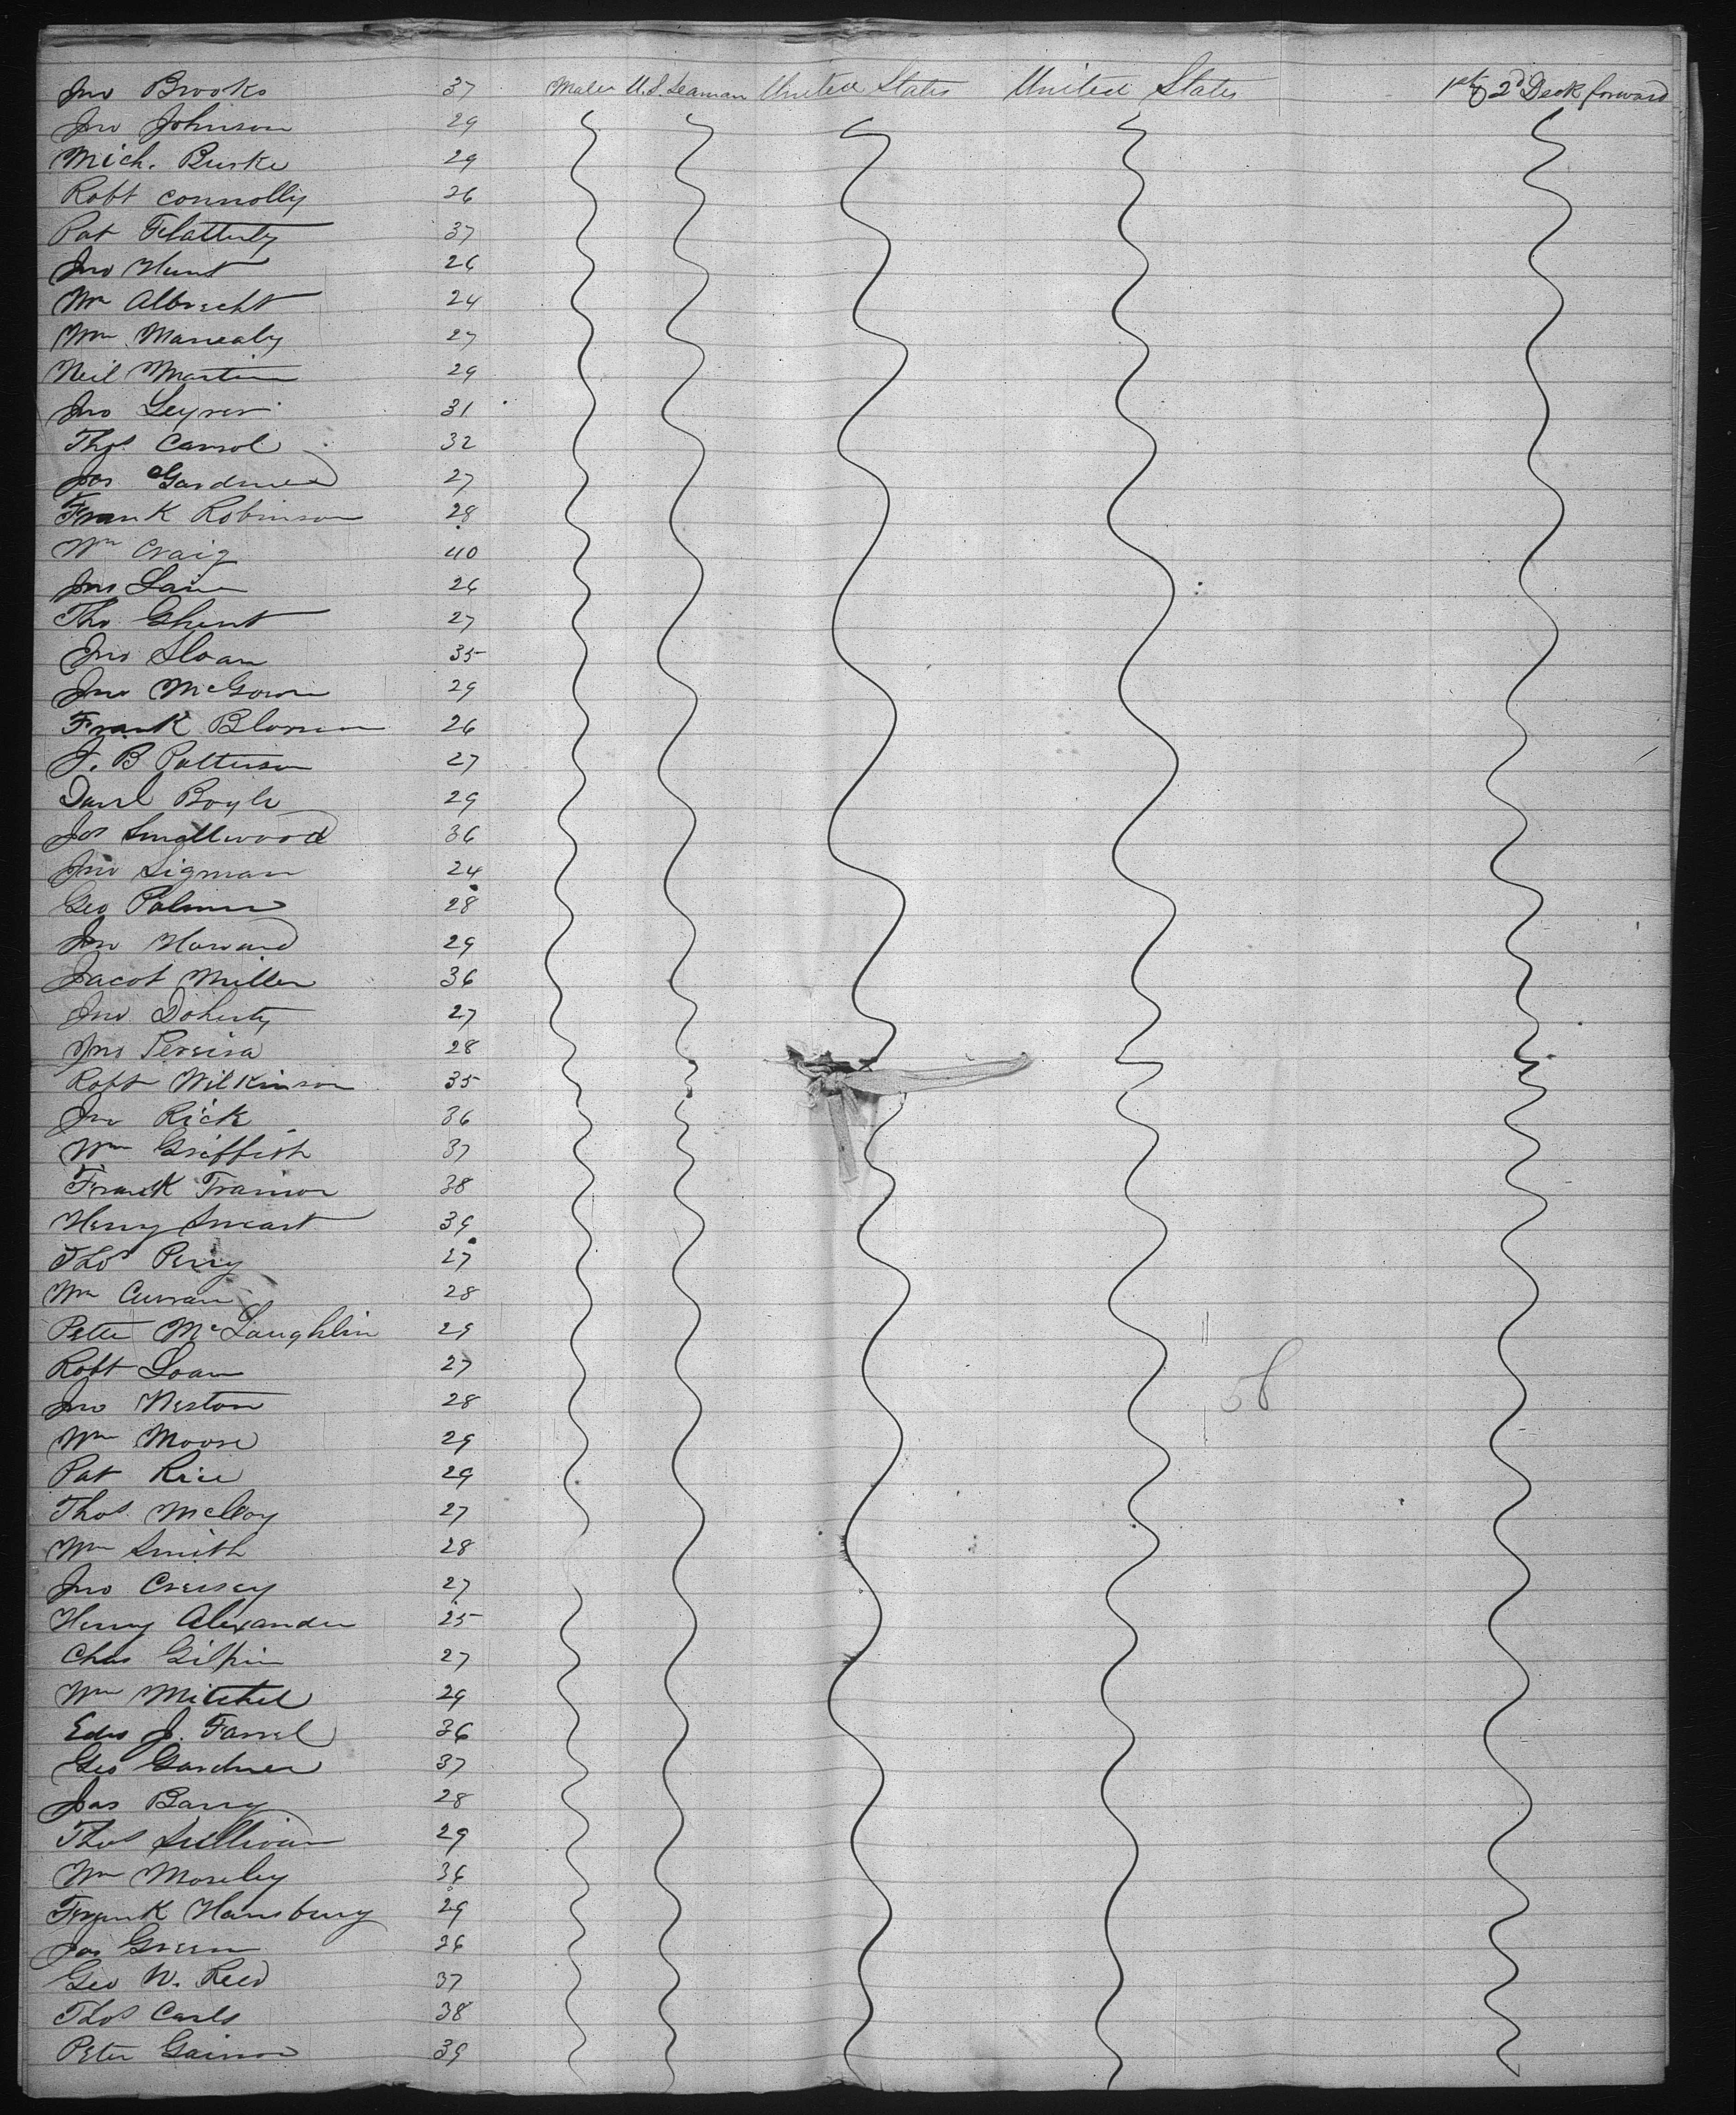 Jno Brooks 37 Males U.S. Seaman United States United States 1st & 2d Deck forward
Jno Johnson 29
Mich. Burke 29
Robt Connolly 26
Pat Flatterly 37
Jno Hunt 26
Wm Albrecht 24
Wm Manealy 27
Neil Martin 29
Jno 31
Thos Carrol 32
Jas Gardner 27
Frank Robinson 28
Wm Craig 40
Jno Lain 26
Tho Ghent 27
Jno Sloan 35
Jno McGown 29
Frank 26
J. B Patterson 27
Danl Boyle 29
Jos Smallwood 36
Jno Sigman 24
Geo Palmer 28
Jno Howard 29
Jacob Miller 36
Jno Doherty 27
Jno Pereira 28
Robt Wilkinson 35
Jno Rick 36
Wm Griffith 37
Frank Trainor 38
Henry Smart 39
Thos Perry 27
Wm Curran 28
Peter McLaughlin 29
Robt Loan 27
Jno Weston 28
58
Wm Moore 29
Pat Rice 29
Thos. McCoy 27
Wm Smith 28
Jno Creesey 27
Henry Alexander 25
Chas Gilpin 27
Wm Mitchel 29
Edw J. Farrel 36
Geo Gardner 37
Jas Barry 28
Thos Sullivan 29
Wm Moseley 36
Frank Hansbury 29
Jas Green 26
Geo W. Reed 37
Thos Carls 38
Peter Gainor 39